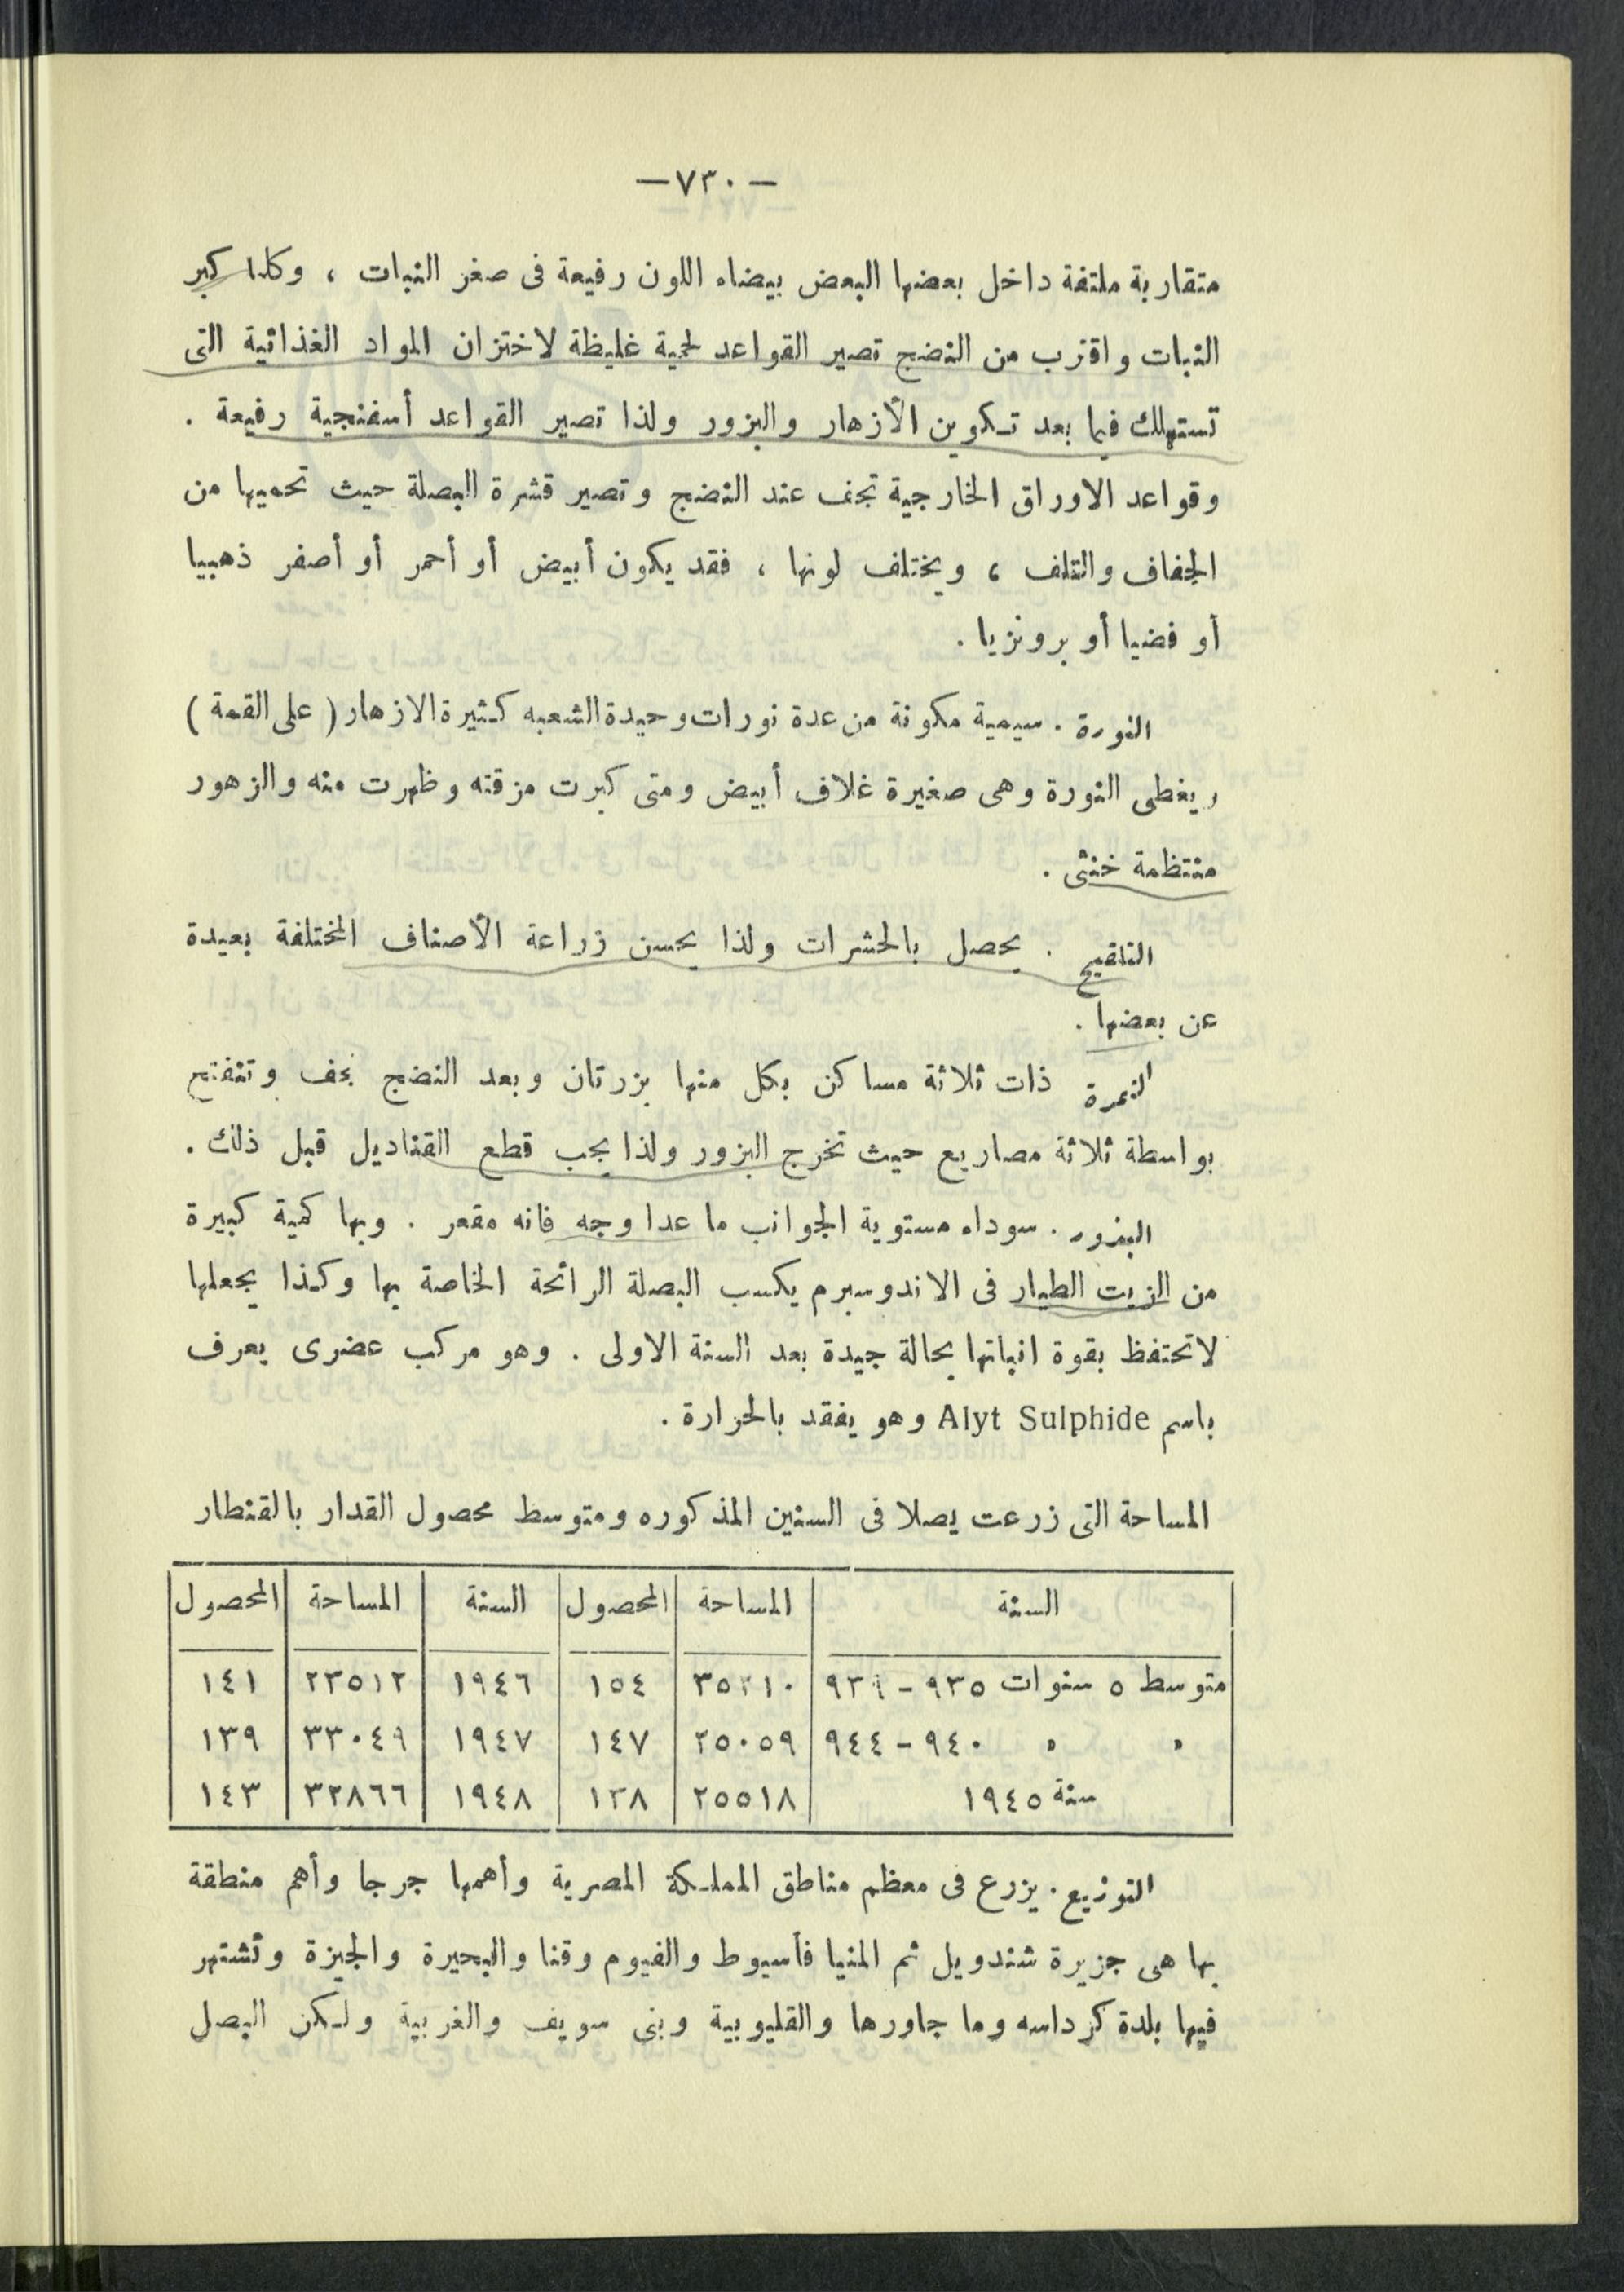 —٧٣٠—
متقاربة ملتفة داخل بعضها البعض بيضاء اللون رفيعة فى صغر النبات ، وكلما كبر
النبات واقترب من النضج تصير القواعد لحمية غليظة لاختزان المواد الغذائية التى
تستهلك فيما بعد تكوين الأزهار والبزور ولذا تصير القواعد أسفنجية رفيعة .
وقواعد الاوراق الخارجية تجف عند النضج وتصير قشرة البصلة حيث تحميها من
الجفاف والتلف ، ويختلف لونها ، فقد يكون أبيض أو أحمر أو أصفر ذهبيا
أو فضيا أو برونزيا .
النورة . سيمية مكونة من عدة نورات وحيدة الشعبه كثيرة الازهار ( على القمة )
ويغطى النورة وهى صغيرة غلاف أبيض ومتى كبرت مزقته وظهرت منه والزهور
منتظمة خنثى .
التلقيح . يحصل بالحشرات ولذا يحسن زراعة الأصناف المختلفة بعيدة
عن بعضها .
الثمرة ذات ثلاثة مساكن بكل منها بزرتان وبعد النضج تجف وتتفتح
بواسطة ثلاثة مصاريع حيث تخرج البزور ولذا يجب قطع القناديل قبل ذلك .
البذور . سوداء مستوية الجوانب ما عدا وجه فانه مقعر . وبها كمية كبيرة
من الزيت الطيار فى الاندوسبرم يكسب البصلة الرائحة الخاصة بها وكذا يجعلها
لاتحتفظ بقوة انباتها بحالة جيدة بعد السنة الاولى . وهو مركب عضوى يعرف
باسم Alyt Sulphide وهو يفقد بالحرارة .
المساحة التى زرعت يصلا فى السنين المذكوره ومتوسط محصول القدار بالقنطار
السنة المساحة المحصول السنة المساحة المحصول
متوسط ٥ سنوات ٩٣٥ - ٩٣٩ ١٥٤ ١٩٤٦ ٢٣٥١٢ ١٤١
» » ٩٤٠ - ٩٤٤ ٢٥٠٥٩ ١٤٧ ١٩٤٧ ٣٣٠٤٩ ١٣٩
سنة ١٩٤٥ ٢٥٥١٨ ١٣٨ ١٩٤٨ ٣٢٨٦٦ ١٤٣
التوزيع . يزرع فى معظم مناطق المملكة المصرية وأهمها جرجا وأهم منطقة
بها هى جزيرة شندويل ثم المنيا فأسيوط والفيوم وقنا والبحيرة والجيزة وتشتهر
فيها بلدة كرداسه وما جاورها والقليوبية وبنى سويف والغربية ولكن البصل